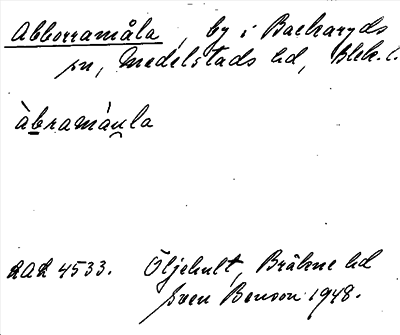 Abborramåla, by i Backaryds
sn, Medelstads hd, Blek. l.
àbramåu̯la
LAL 4533. Öljehult, Bräkne hd
Sven Benson 1948.